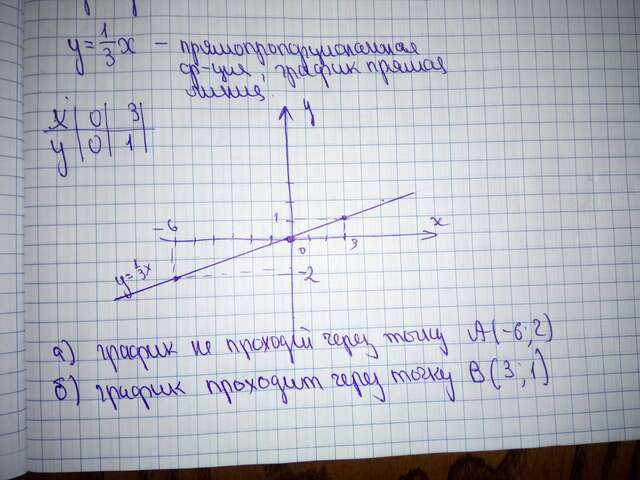 y = 1/3 x – прямопропорциональная
ф-ция, график прямая
линия.
x | 0 | 3
y | 0 | 1
y
y = 1/3 x
1
-6
0
3
x
-2
а) график не проходит через точку A(-6; 2)
б) график проходит через точку B(3; 1)